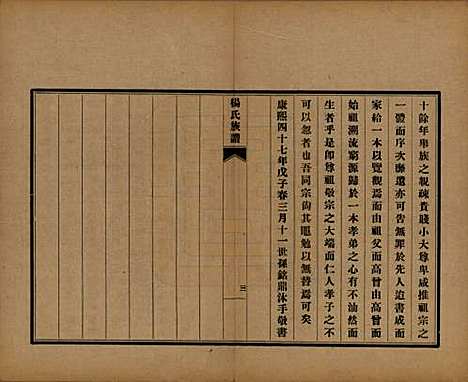 十餘年舉族之親疎貴賤小大尊卑咸推祖宗之
一體而序次聯遺亦可告無罪於先人迨書成而
家給一本以覽觀焉而由祖父而高曾而
始祖溯流窮源歸於一本孝弟之心不油然而
生者乎是卽尊祖敬宗之大端而仁人孝子之不
可以忽者也吾同宗尙其黽勉以無替焉可矣
康熙四十七年戊子春三月十一世孫銘鼎沐手敬書
楊氏族譜
三